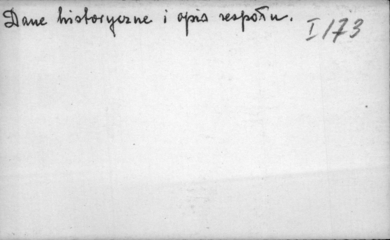 Dane historyczne i opis zespołu.
I/173